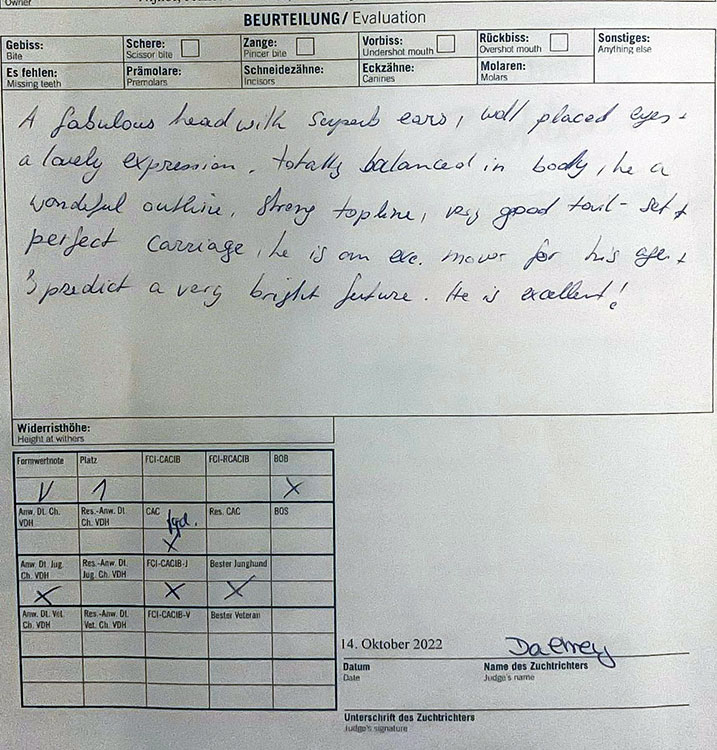 Owner
BEURTEILUNG/ Evaluation
Gebiss:
Bite
Schere:
Scissor bite
Zange:
Pincer bite
Vorbiss:
Undershot mouth
Rückbiss:
Overshot mouth
Sonstiges:
Anything else
Es fehlen:
Missing teeth
Prämolare:
Premolars
Schneidezähne:
Incisors
Eckzähne:
Canines
Molaren:
Molars
A fabulous head with superb ears, well placed eyes +
a lovely expression. totally balanced in body, he a
wonderful outline, strong topline, very good tail-set +
perfect carriage, he is an exc. mover for his age +
I predict a very bright future. He is excellent!
Widerristhöhe:
Height at withers
Formwertnote
Platz
FCI-CACIB
FCI-RCACIB
BOB
V
1
X
Anw. Dt. Ch.
VDH
Res.-Anw. Dt.
Ch. VDH
CAC
Jgd.
Res. CAC
BOS
X
Anw. Dt. Jug.
Ch. VDH
Res.-Anw. Dt.
Jug. Ch. VDH
FCI-CACIB-J
Bester Junghund
X
X
X
Anw. Dt. Vet.
Ch. VDH
Res.-Anw. Dt.
Vet. Ch. VDH
FCI-CACIB-V
Bester Veteran
14. Oktober 2022
Datum
Date
Name des Zuchtrichters
Judge's name
Unterschrift des Zuchtrichters
Judge's signature